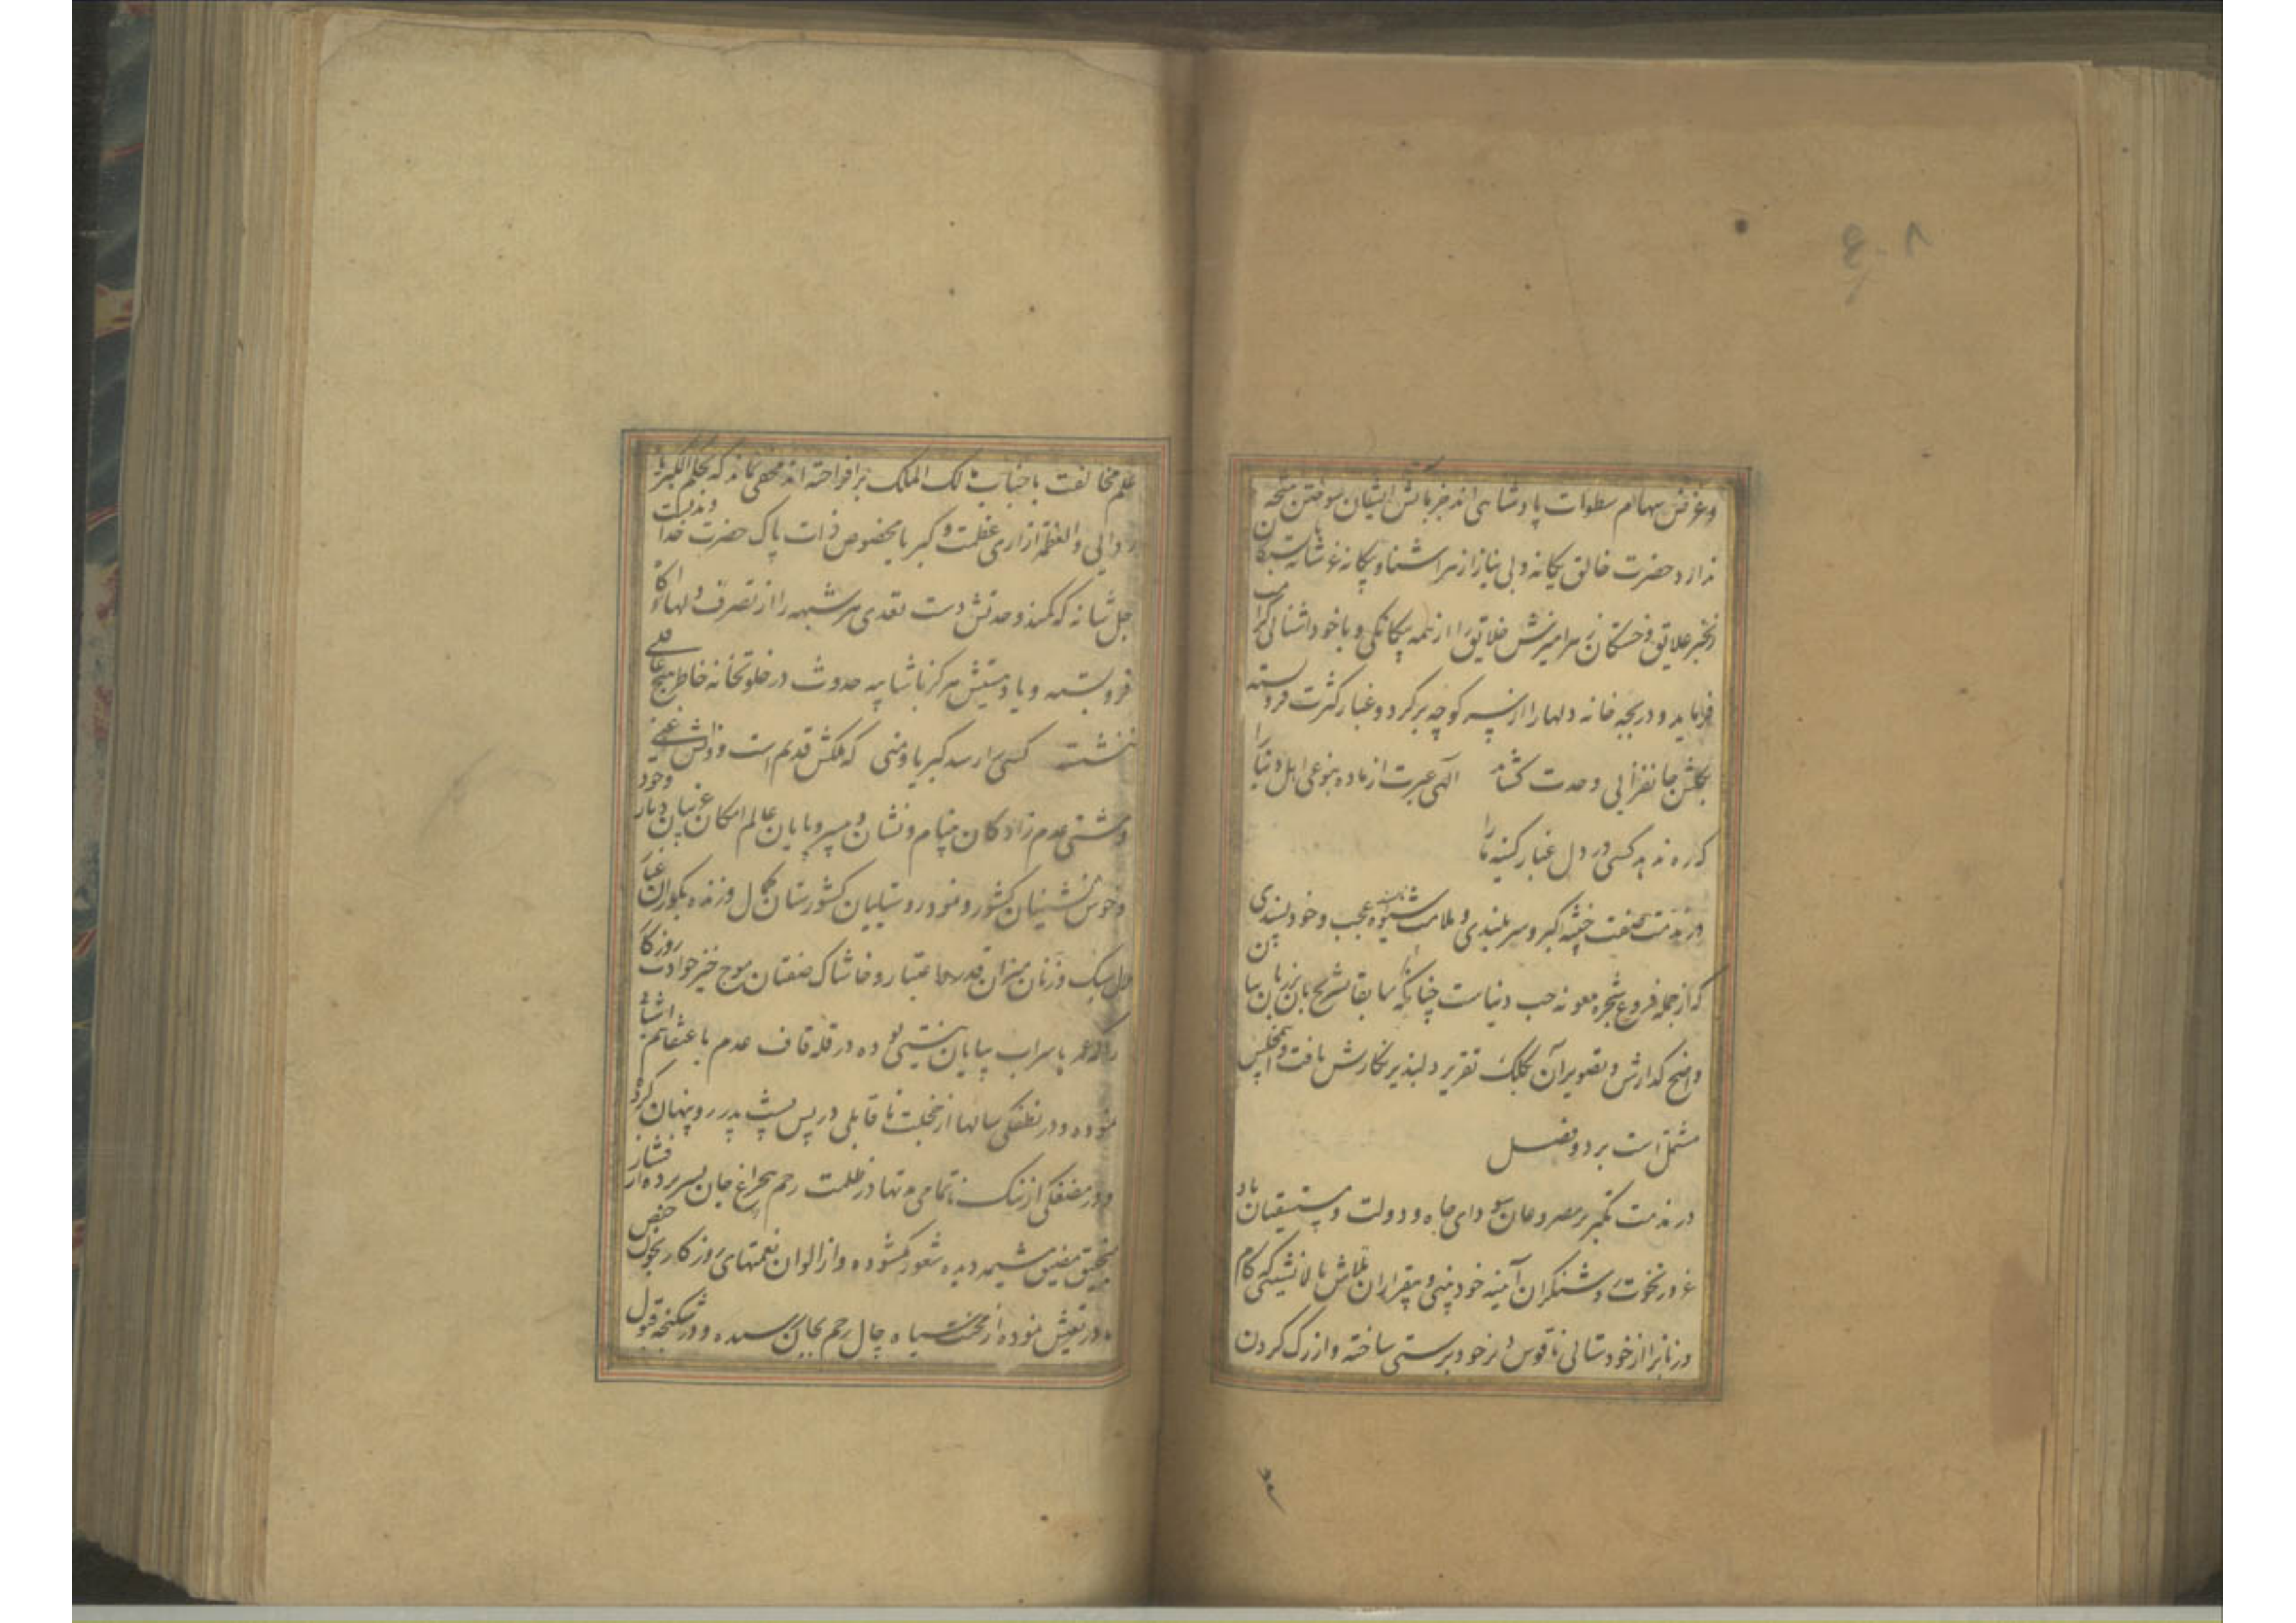 ۶۰۸
و غرض سهام سطوات پادشاهی اند جز بآتش ایشان سوختن نتیجه
ندارد حضرت خالق یگانه و بی نیاز از هر آشنا و بیگانه عز شانه بستگان
زنجیر علایق و خستگان زهر آمیزش خلایق را از همه بیگانگی و با خود آشنائی کرامت
فرماید و دریچه خانه دلها را از پس کوچه پر گرد و غبار کثرت فرو بسته
بگلشن جانفزای وحدت گشاید الهی عبرت از ما ده بنوعی اهل دنیا را
که ره ندهد کسی در دل غبار کینه ما را
در مذمت صفت خبیثه کبر و سربلندی و ملامت شیوه ناپسندیده عجب و خودپسندی
که از جمله فروع شجره ملعونه حب دنیاست چنانکه سابقا تشریح بآن بزبان بیان
واضح گذارش و تصویر آن بکلک تقریر دلپذیر نگارش یافت و این مجلس
مشتمل است بر دو فصل
در مذمت تکبر بر مصروعان سودای جاه و دولت و مستسقیان باد
غرور نخوت و روشنگران آینه خودبینی و بیقراران تلاش بالانشینی که کام
و زبانرا از خودستائی ناقوس دیر خودپرستی ساخته و از رگ گردن
علم مخالفت با جناب مالک الملک برافراخته اند مخفی نماند که بحکم الکبریاء
ردائی و العظمة ازاری عظمت و کبریا مخصوص ذات پاک حضرت خداوندیست
جل شانه که کمند وحدتش دست تعدی هر شبهه را از تصرف دلهای آگاه
فرو بسته و یاد هستیش هرگز با شایبه حدوث در خلوتخانه خاطر هیچ عاقلی
ننشسته کسی را رسد کبریا و منی که ملکش قدیم است و ذاتش غنی
و مشتی عدم زادگان بینام و نشان و بی سر و پایان عالم امکان غریبان دیار وجود
و خوش نشینان کشور و نمود روستاییان کشورستان کمال و زنده بگوران غبار
دل سبک وزنان میزان قدر و اعتبار و خاشاک صفتان موج خیز حوادث روزگار
که عمر با سراب بیابان نیستی بوده در قله قاف عدم با عنقا هم آشیانی
نموده و در نطفگی سالها از خجلت ناقابلی در پس پشت پدر رو پنهان کرده
و در مضغگی از ننگ ناتمامی مدتها در ظلمت رحم بی چراغ جان بسر برده از فشار
مضیق مشیمه دیده شعور گشوده و از الوان نعمتهای روزگار بخون حیض
مدار تعیش نموده از محنت سیاه چال رحم بجان رسیده و در شکنجه قبول